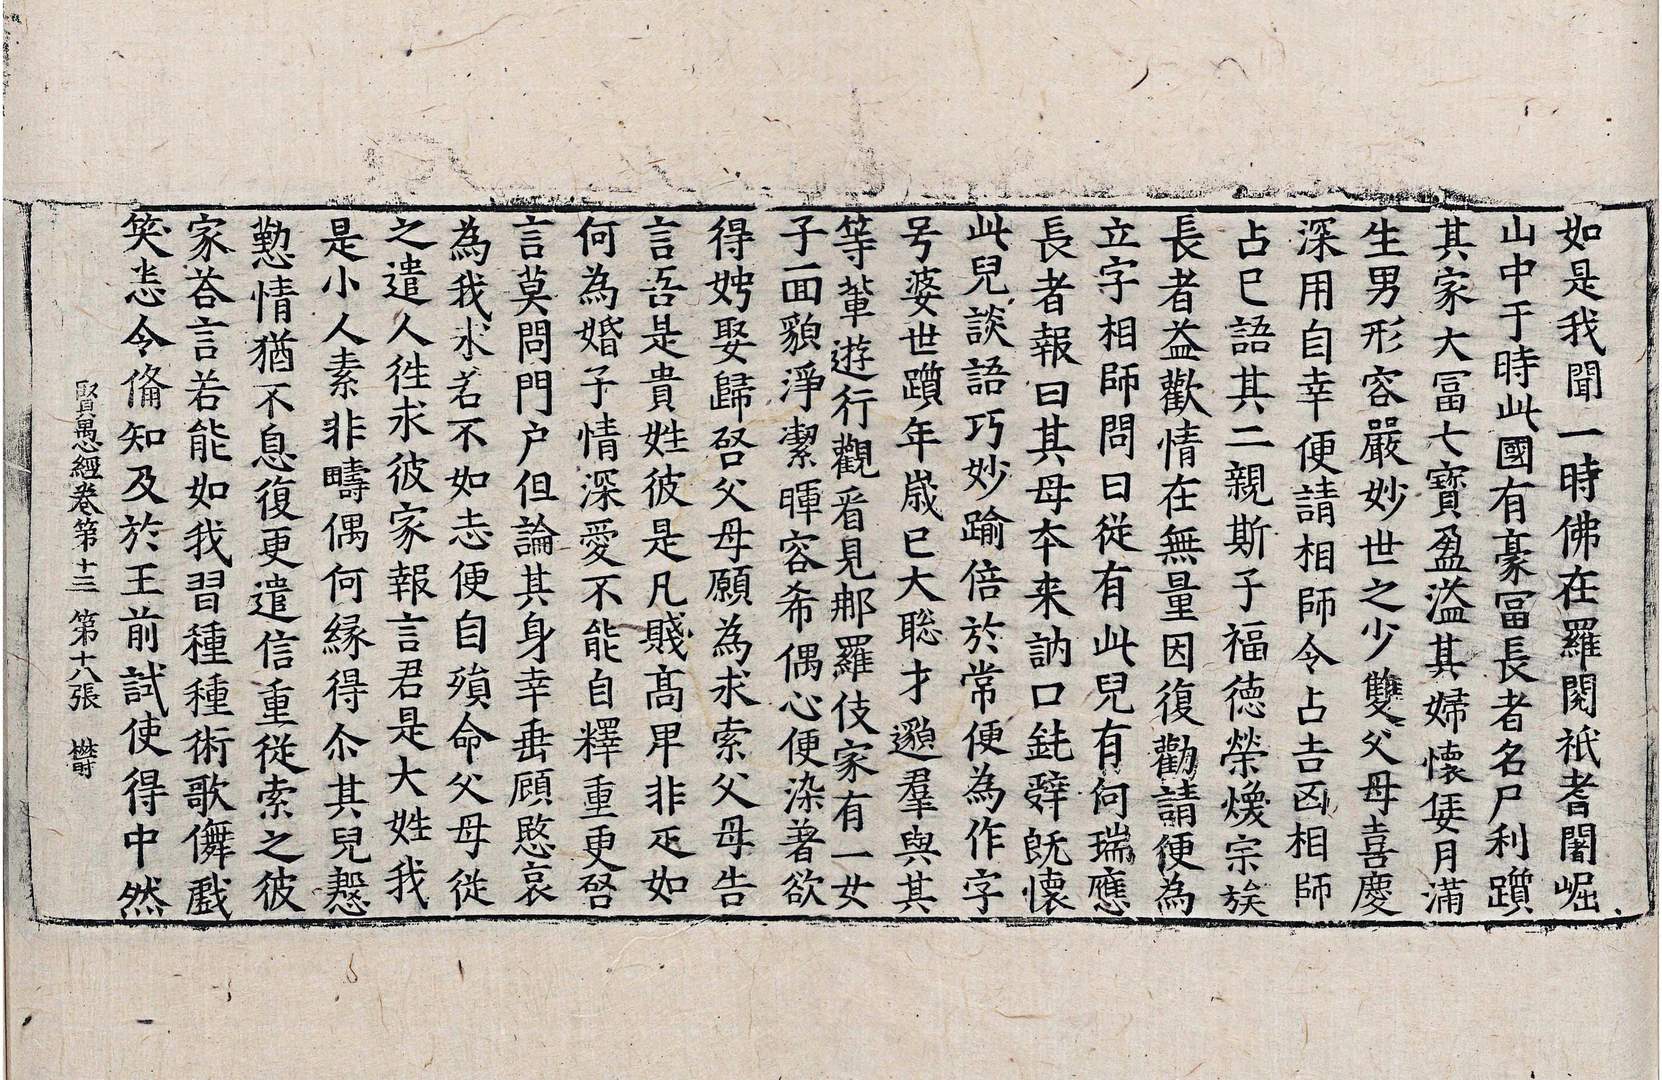 如是我聞一時佛在羅閱祇耆闍崛
山中于時此國有豪冨長者名尸利躓
其家大冨七寶盈溢其婦懷妊月滿
生男形容嚴妙世之少雙父母喜慶
深用自幸便請相師令占吉凶相師
占已語其二親斯子福德榮煥宗族
長者益歡情在無量因復勸請便為
立字相師問曰從有此兒有何瑞應
長者報曰其母本来訥口鈍辭旣懷
此兒談語巧妙踰倍於常便為作字
号婆世躓年歲已大聡才邈羣與其
等輩遊行觀看見那羅伎家有一女
子面貌淨潔暉容希偶心便染著欲
得娉娶歸啓父母願為求索父母告
言吾是貴姓彼是凡賤髙卑非疋如
何為婚子情深愛不能自釋重更啓
言莫問門户但論其身幸垂顧愍哀
為我求若不如志便自殞命父母從
之遣人徃求彼家報言君是大姓我
是小人素非疇偶何緣得尒其兒慇
懃情猶不息復更遣信重從索之彼
家荅言若能如我習種種術歌儛戲
笑悉令俻知及於王前試使得中然
賢愚經卷第十三 第十八張 欎